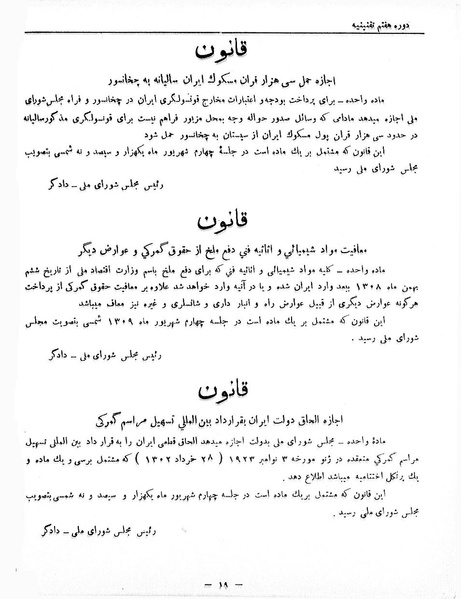 دوره هفتم تقنینیه
قانون
اجازه حمل سی هزار قران مسکوك ایران سالیانه به چخانسور
ماده واحده ـ برای پرداخت بودجه و اعتبارات مخارج قونسولگری ایران در چخانسور و فراه مجلس شورای
ملی اجازه میدهد مادامی که وسائل صدور حواله وجه بمحل مزبور فراهم نیست برای قونسولگری مذکور سالیانه
در حدود سی هزار قران پول مسکوك ایران از سیستان به چخانسور حمل شود
این قانون که مشتمل بر یك ماده است در جلسهٔ چهارم شهریور ماه یکهزار و سیصد و نه شمسی بتصویب
مجلس شورای ملی رسید
رئیس مجلس شورای ملی ـ دادگر
قانون
معافیت مواد شیمیائی و اثاثیه فنی دفع ملخ از حقوق گمرکی و عوارض دیگر
ماده واحده ـ کلیه مواد شیمیائی و اثاثیه فنی که برای دفع ملخ باسم وزارت اقتصاد ملی از تاریخ ششم
بهمن ماه ۱۳۰۸ ببعد وارد ایران شده و یا در آتیه وارد خواهد شد علاوه بر معافیت حقوق گمرکی از پرداخت
هرگونه عوارض دیگری از قبیل عوارض راه و انبار داری و شانسلری و غیره نیز معاف میباشد
این قانون که مشتمل بر یك ماده است در جلسه چهارم شهریور ماه ۱۳۰۹ شمسی بتصویب مجلس
شورای ملی رسید .
رئیس مجلس شورای ملی ـ دادگر
قانون
اجازه الحاق دولت ایران بقرارداد بین المللی تسهیل مراسم گمرکی
مادهٔ واحده ـ مجلس شورای ملی بدولت اجازه میدهد الحاق قطعی ایران را به قرار داد بین المللی تسهیل
مراسم گمرکی منعقده در ژنو مورخه ۳ نوامبر ۱۹۲۳ ( ۲۸ خرداد ۱۳۰۲ ) که مشتمل برسی و یك ماده و
یك پرتکل اختتامیه میباشد اطلاع دهد .
این قانون که مشتمل بر یك ماده است در جلسه چهارم شهریور ماه یکهزار و سیصد و نه شمسی بتصویب
مجلس شورای ملی رسید .
رئیس مجلس شورای ملی ـ دادگر
ـ ۱۹ ـ